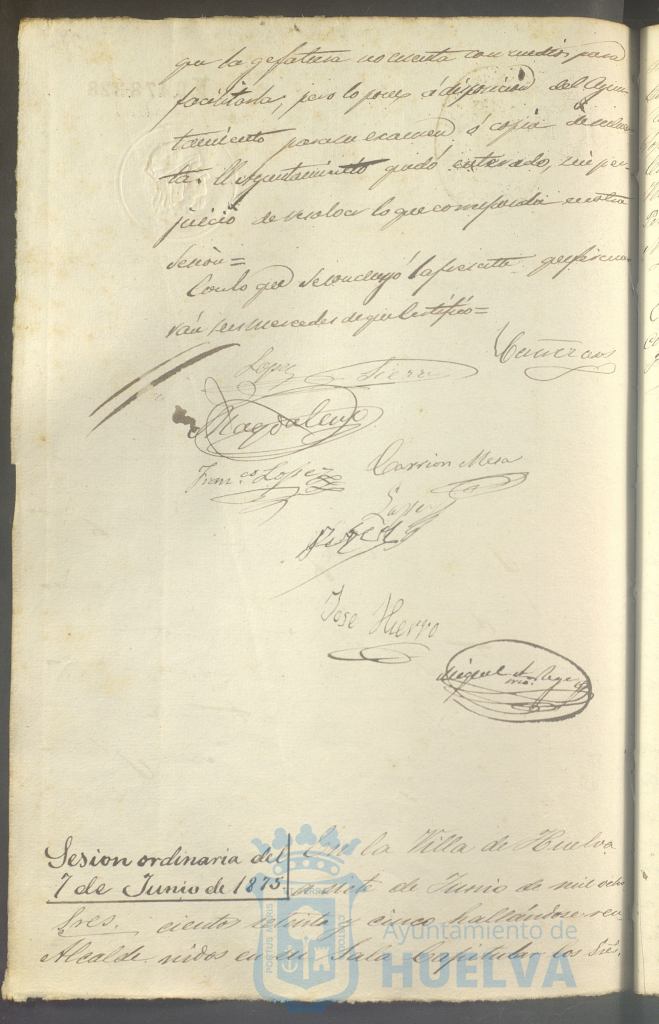 que la gefatura no cuenta con medios para
facilitarla, pero lo pone á disposicion del Ayun-
tamiento para su examen ó copia de
ta. El Ayuntamiento quedó enterado, sin per-
juicio de resolver lo que corresponda en otra
sesion=
Con lo que se concluyó la presente que firma-
rán sus mercedes de que Certifico=
Lopez Sierra
Magdaleno
Franco Lopez
Carrion Mesa
Jose Hierro
Miguel
Sesion ordinaria del
7 de Junio de 1875.
En la Villa de Huelva
á siete de Junio de mil ocho
Sres.
cientos setenta y cinco hallándose reu-
Alcalde
nidos en su Sala Capitular los Sres.
PORTUS MARIS
Ayuntamiento de
HUELVA